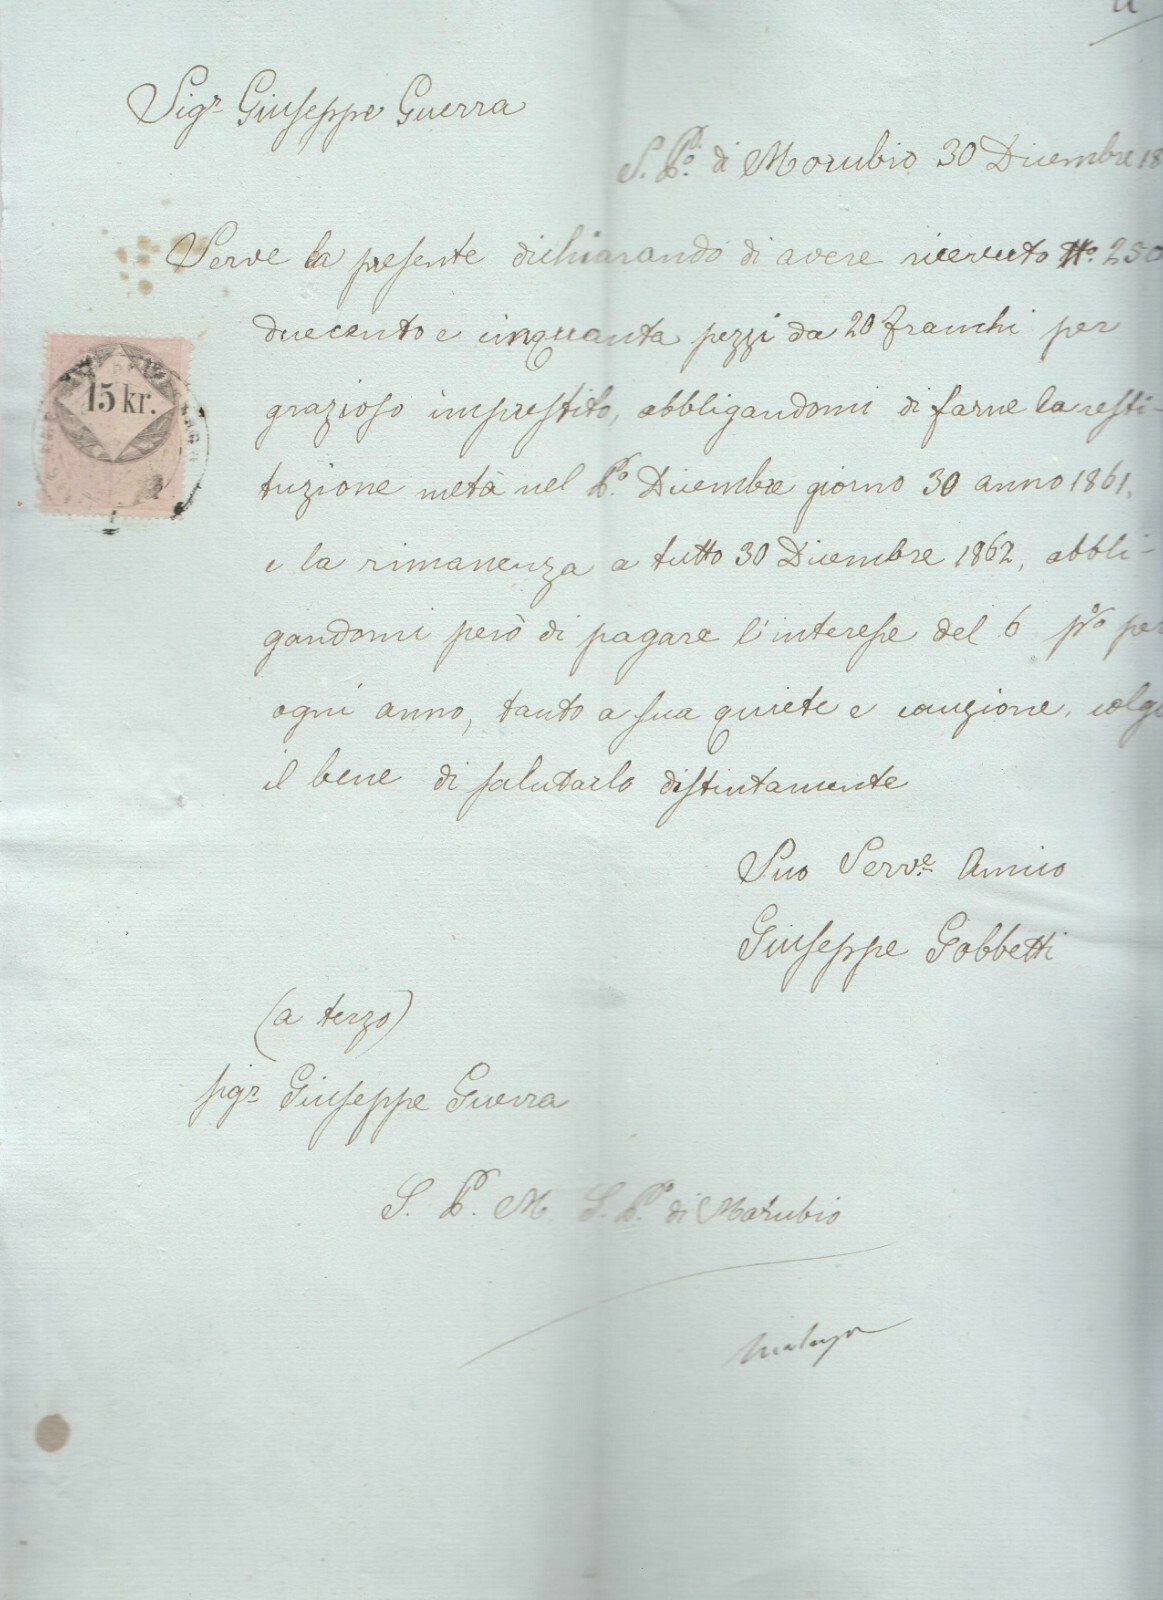 Sigr. Giuseppe Guerra
S. Po. di Morubio 30 Dicembre 18
Serve la presente dichiarando di avere ricevuto No. 250
duecento e cinquanta pezzi da 20 franchi per
grazioso imprestito, obbligandomi di farne la resti-
tuzione metà nel Po. Dicembre giorno 30 anno 1861,
e la rimanenza a tutto 30 Dicembre 1862, obbli-
gandomi però di pagare l'interesse del 6 p% per
ogni anno, tanto a sua quiete e cauzione, colgo
il bene di salutarlo distintamente
Suo Serve. Amico
Giuseppe Gobbetti
(a terzo)
sigr. Giuseppe Guerra
S. P. M. S. Po. di Morubio
15 kr.